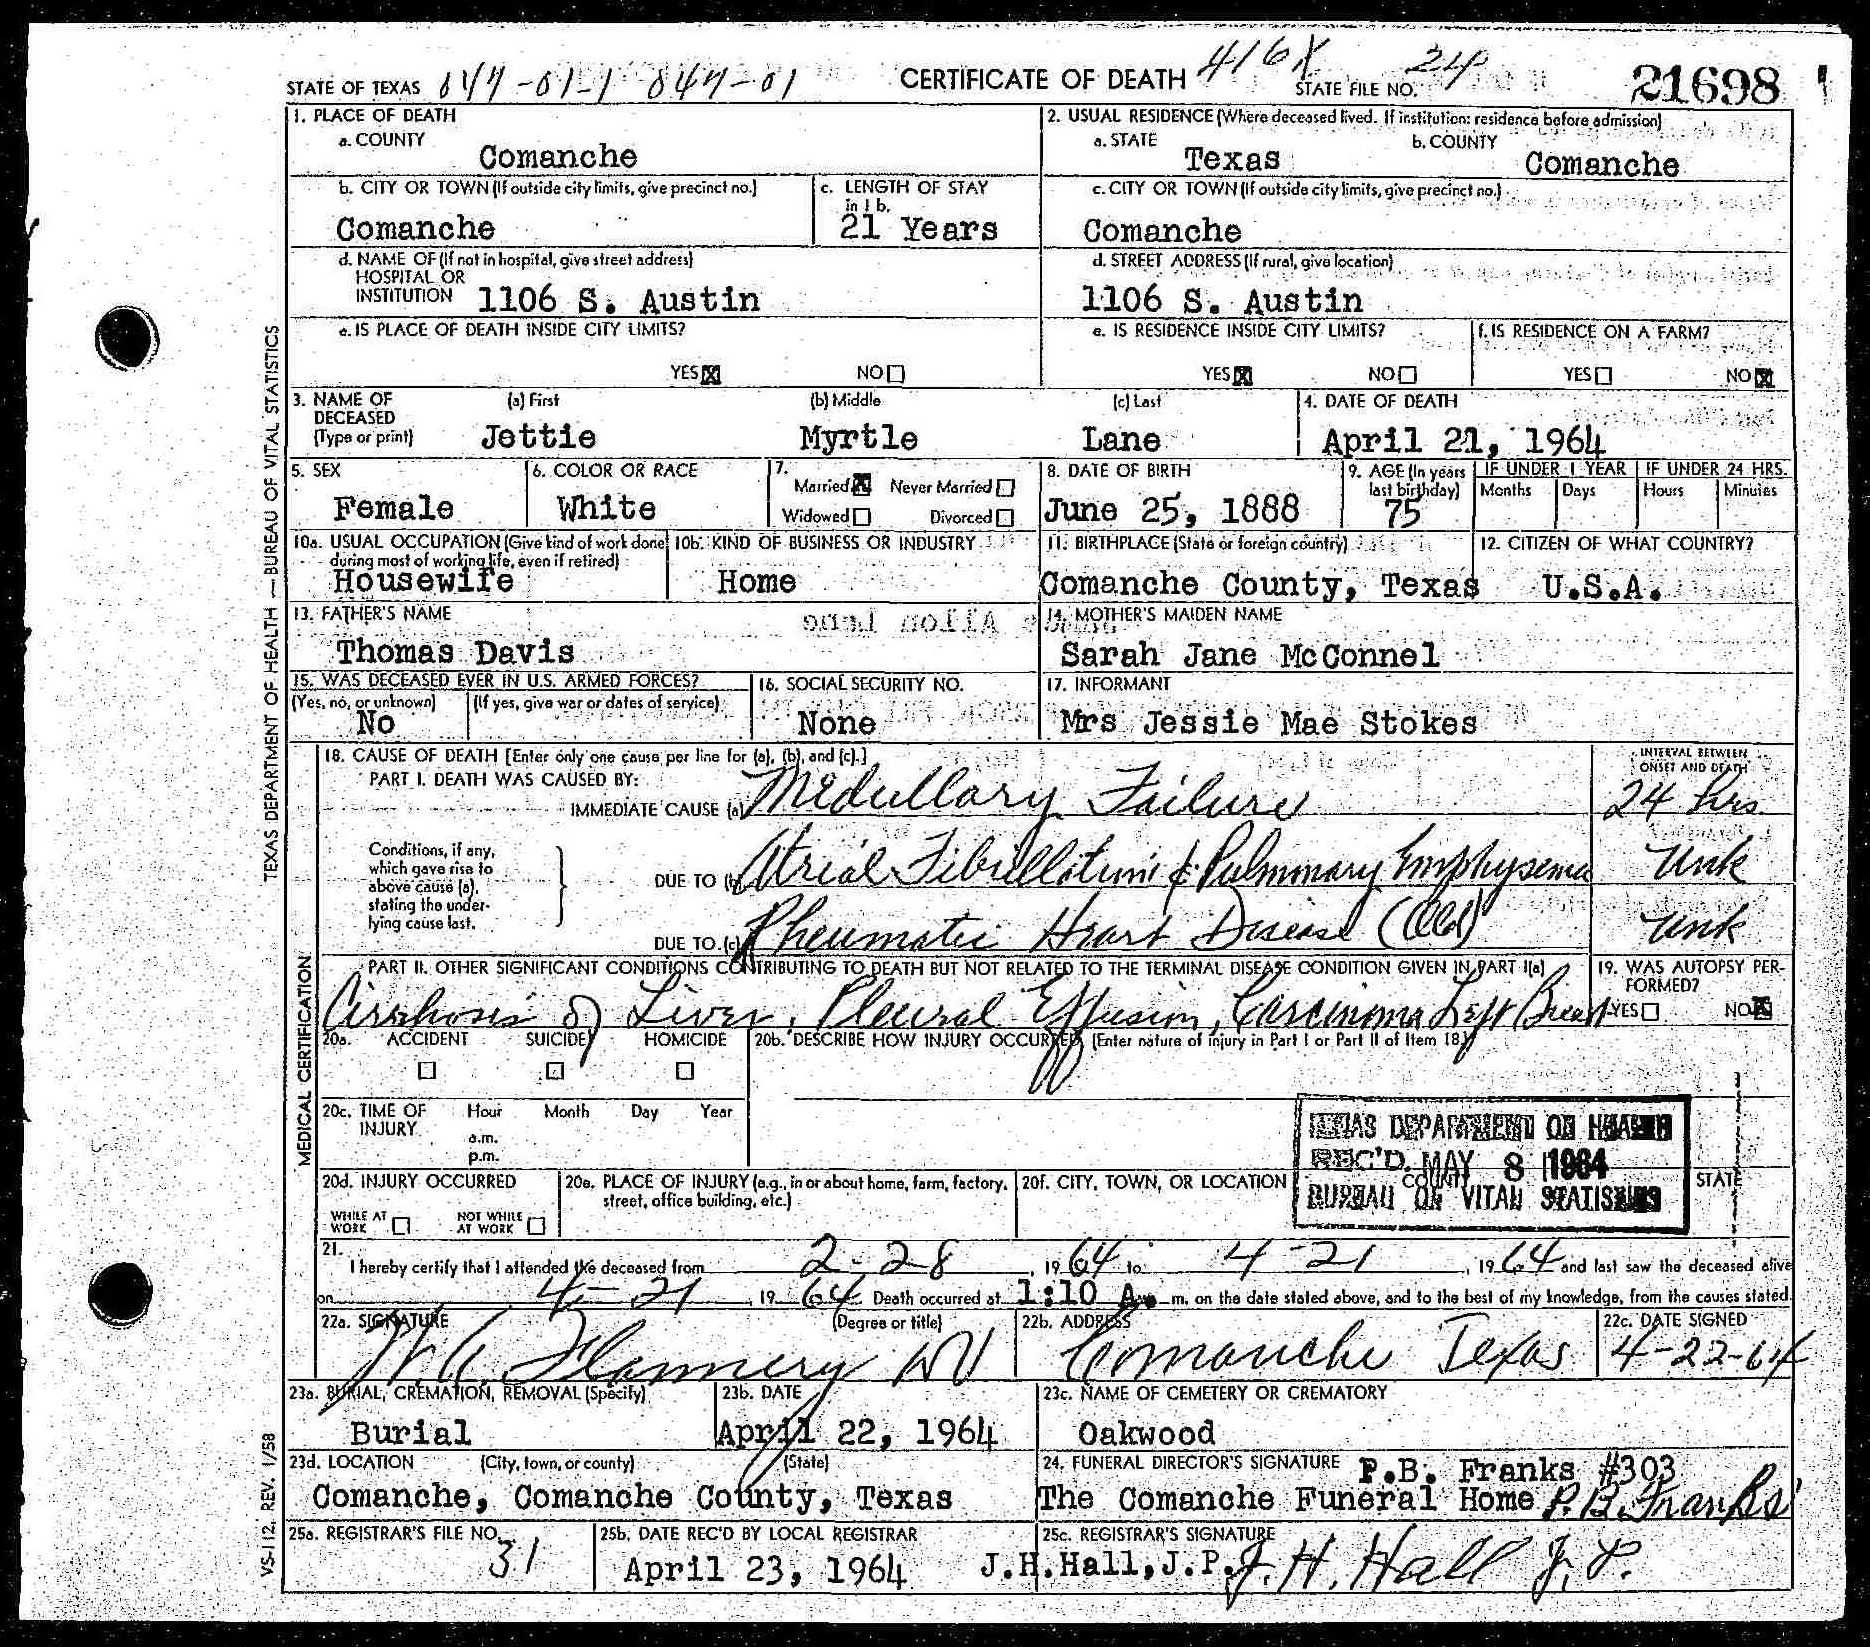 STATE OF TEXAS 047-01-1 047-01 CERTIFICATE OF DEATH 416X STATE FILE NO. 24 21698
1. PLACE OF DEATH
a. COUNTY
Comanche
2. USUAL RESIDENCE (Where deceased lived. If institution: residence before admission)
a. STATE Texas b. COUNTY Comanche
b. CITY OR TOWN (If outside city limits, give precinct no.)
Comanche
c. LENGTH OF STAY
in 1 b.
21 Years
c. CITY OR TOWN (If outside city limits, give precinct no.)
Comanche
d. NAME OF (If not in hospital, give street address)
HOSPITAL OR
INSTITUTION 1106 S. Austin
d. STREET ADDRESS (If rural, give location)
1106 S. Austin
e. IS PLACE OF DEATH INSIDE CITY LIMITS?
YES X NO
e. IS RESIDENCE INSIDE CITY LIMITS?
YES X NO
f. IS RESIDENCE ON A FARM?
YES NO X
3. NAME OF
DECEASED
(Type or print)
(a) First (b) Middle (c) Last
Jettie Myrtle Lane
4. DATE OF DEATH
April 21, 1964
5. SEX
Female
6. COLOR OR RACE
White
7.
Married X Never Married
Widowed Divorced
8. DATE OF BIRTH
June 25, 1888
9. AGE (In years
last birthday)
75
IF UNDER 1 YEAR
Months Days
IF UNDER 24 HRS.
Hours Minutes
10a. USUAL OCCUPATION (Give kind of work done
during most of working life, even if retired)
Housewife
10b. KIND OF BUSINESS OR INDUSTRY
Home
11. BIRTHPLACE (State or foreign country)
Comanche County, Texas
12. CITIZEN OF WHAT COUNTRY?
U.S.A.
13. FATHER'S NAME
Thomas Davis
14. MOTHER'S MAIDEN NAME
Sarah Jane McConnel
15. WAS DECEASED EVER IN U.S. ARMED FORCES?
(Yes, no, or unknown) (If yes, give war or dates of service)
No
16. SOCIAL SECURITY NO.
None
17. INFORMANT
Mrs Jessie Mae Stokes
18. CAUSE OF DEATH [Enter only one cause per line for (a), (b), and (c).]
PART I. DEATH WAS CAUSED BY:
IMMEDIATE CAUSE (a) Medullary Failure
INTERVAL BETWEEN
ONSET AND DEATH
24 hrs.
Conditions, if any,
which gave rise to
above cause (a),
stating the under-
lying cause last.
DUE TO (b) Atrial Fibrillation & Pulmonary Emphysema Unk
DUE TO (c) Rheumatic Heart Disease (Old) Unk
PART II. OTHER SIGNIFICANT CONDITIONS CONTRIBUTING TO DEATH BUT NOT RELATED TO THE TERMINAL DISEASE CONDITION GIVEN IN PART I(a)
Cirrhosis of Liver, Pleural Effusion, Carcinoma Left Breast
19. WAS AUTOPSY PER-
FORMED?
YES NO X
20a. ACCIDENT SUICIDE HOMICIDE
20b. DESCRIBE HOW INJURY OCCURRED. (Enter nature of injury in Part I or Part II of Item 18.)
20c. TIME OF
INJURY
Hour Month Day Year
a.m.
p.m.
TEXAS DEPARTMENT OF HEALTH
REC'D. MAY 8 1964
BUREAU OF VITAL STATISTICS
20d. INJURY OCCURRED
WHILE AT
WORK
NOT WHILE
AT WORK
20e. PLACE OF INJURY (e.g., in or about home, farm, factory,
street, office building, etc.)
20f. CITY, TOWN, OR LOCATION COUNTY STATE
21.
I hereby certify that I attended the deceased from 2-28, 1964 to 4-21, 1964 and last saw the deceased alive
on 4-21, 1964. Death occurred at 1:10 A. m. on the date stated above, and to the best of my knowledge, from the causes stated.
22a. SIGNATURE (Degree or title)
Flannery
22b. ADDRESS
Comanche Texas
22c. DATE SIGNED
4-22-64
23a. BURIAL, CREMATION, REMOVAL (Specify)
Burial
23b. DATE
April 22, 1964
23c. NAME OF CEMETERY OR CREMATORY
Oakwood
23d. LOCATION (City, town, or county) (State)
Comanche, Comanche County, Texas
24. FUNERAL DIRECTOR'S SIGNATURE P.B. Franks #303
The Comanche Funeral Home P.B. Franks
25a. REGISTRAR'S FILE NO.
31
25b. DATE REC'D BY LOCAL REGISTRAR
April 23, 1964
25c. REGISTRAR'S SIGNATURE
J.H.Hall,J.P. J. H. Hall J. P.
TEXAS DEPARTMENT OF HEALTH — BUREAU OF VITAL STATISTICS
MEDICAL CERTIFICATION
VS-112, REV. 1/58